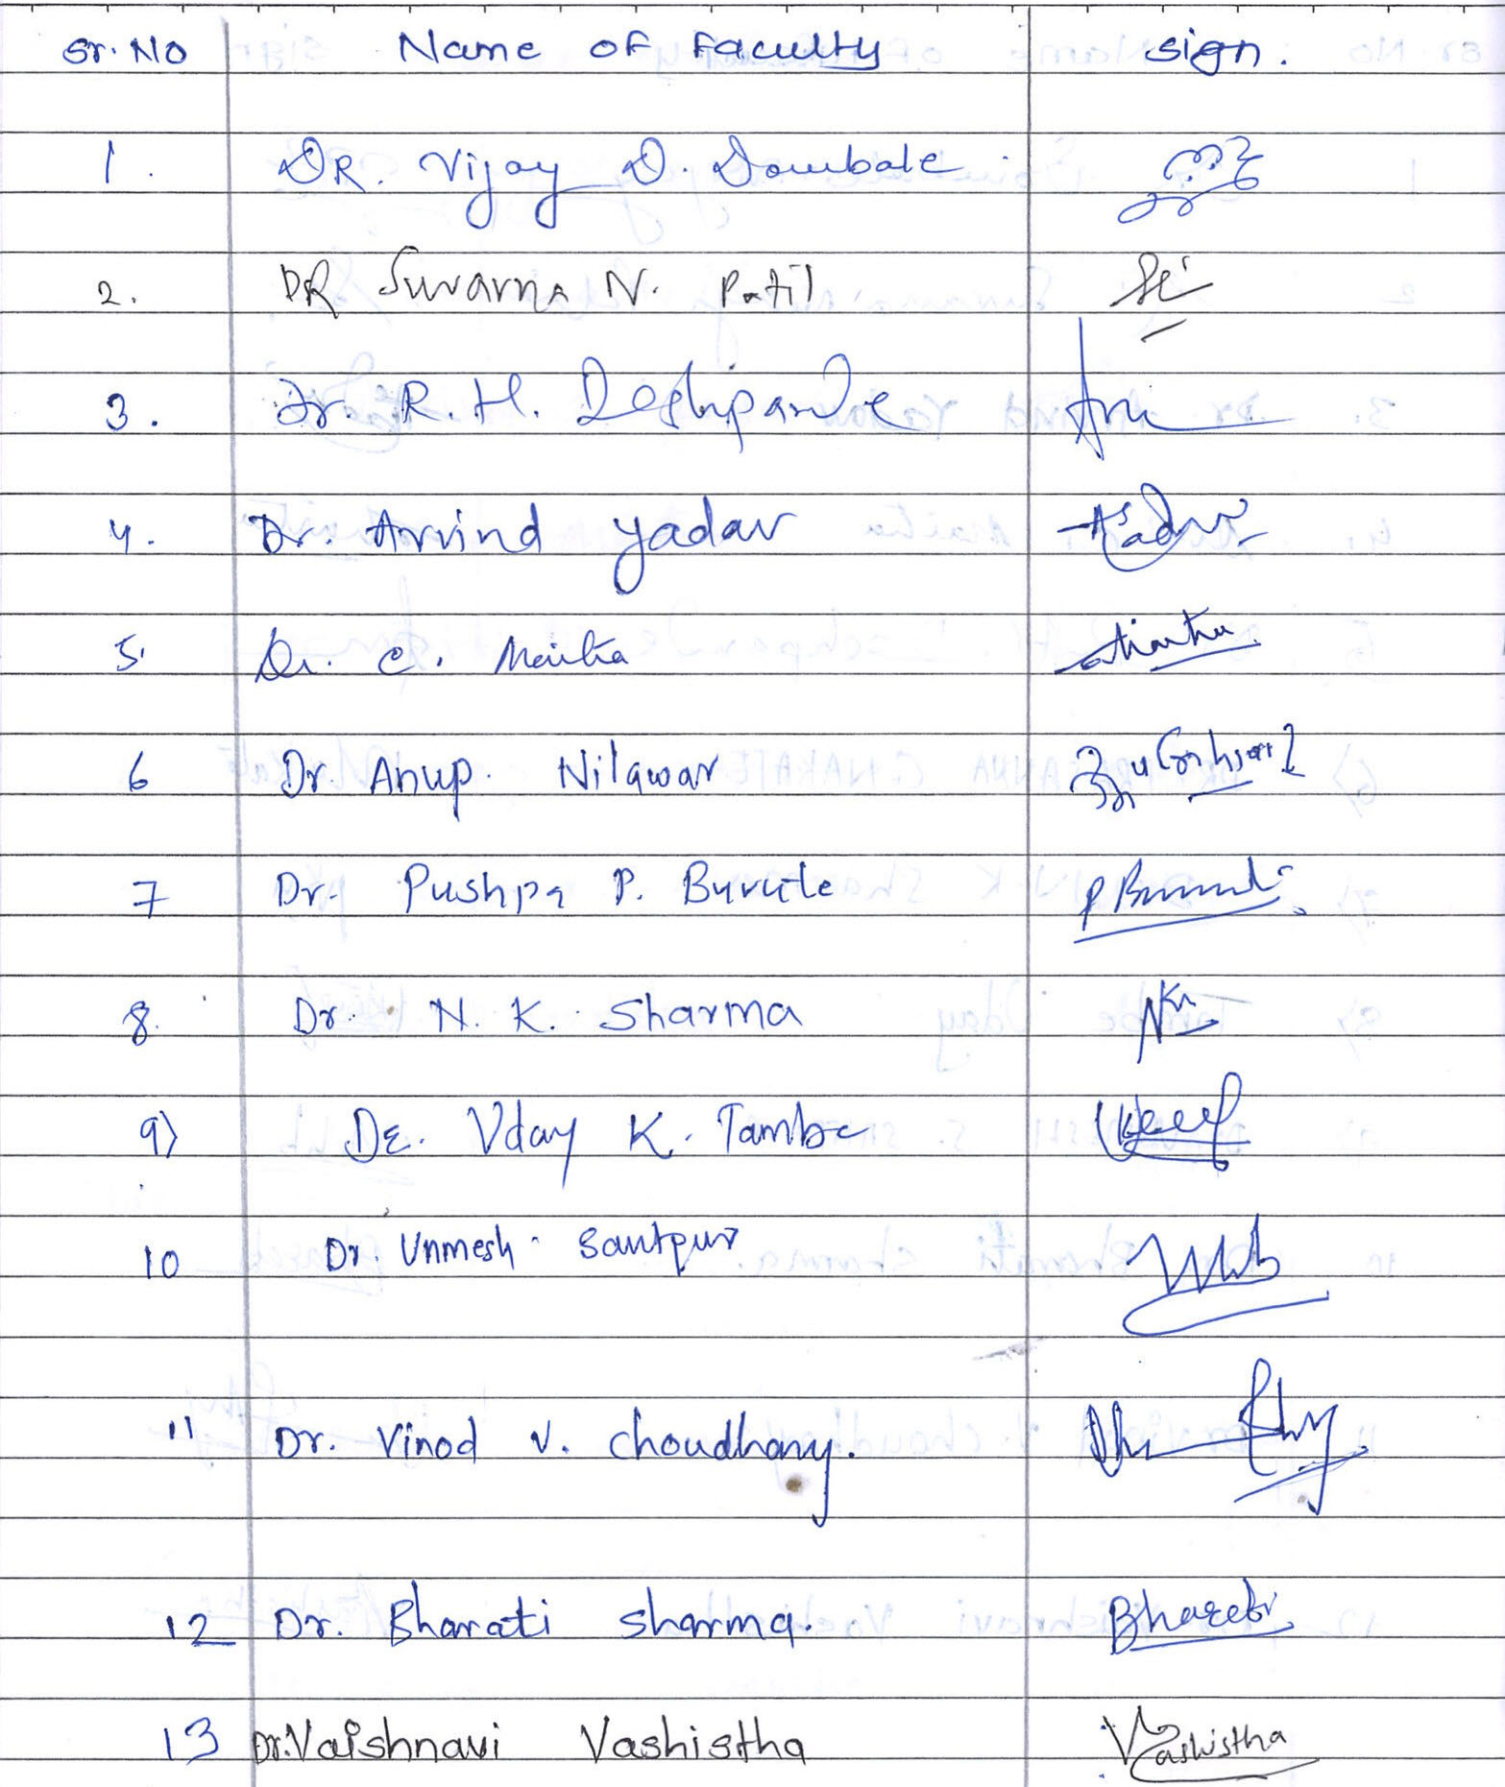 Sr. No Name of Faculty sign.
1. DR. Vijay D. Dombale
2. DR Suvarna N. Patil
3. Dr. R. H. Deshpande
4. Dr. Arvind Yadav
5. Dr. C. Maitra
6 Dr. Anup. Nilawar
7 Dr. Pushpa P. Burute
8. Dr. N. K. Sharma NK
9) Dr. Uday K. Tambe
10 Dr Unmesh. Santpur
11 Dr. Vinod V. Choudhary.
12 Dr. Bharati Sharma. Bharati
13 Dr. Vaishnavi Vashistha Vashistha